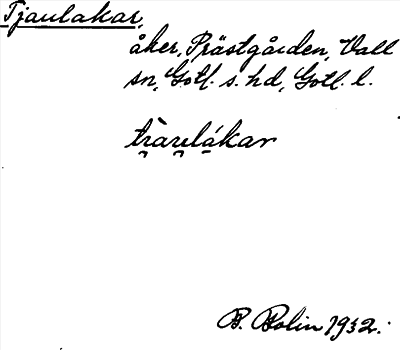 Tjaulakar,
åker, Prästgården, Vall
sn, Gotl. s. hd, Gotl. l.
B. Bolin 1932.